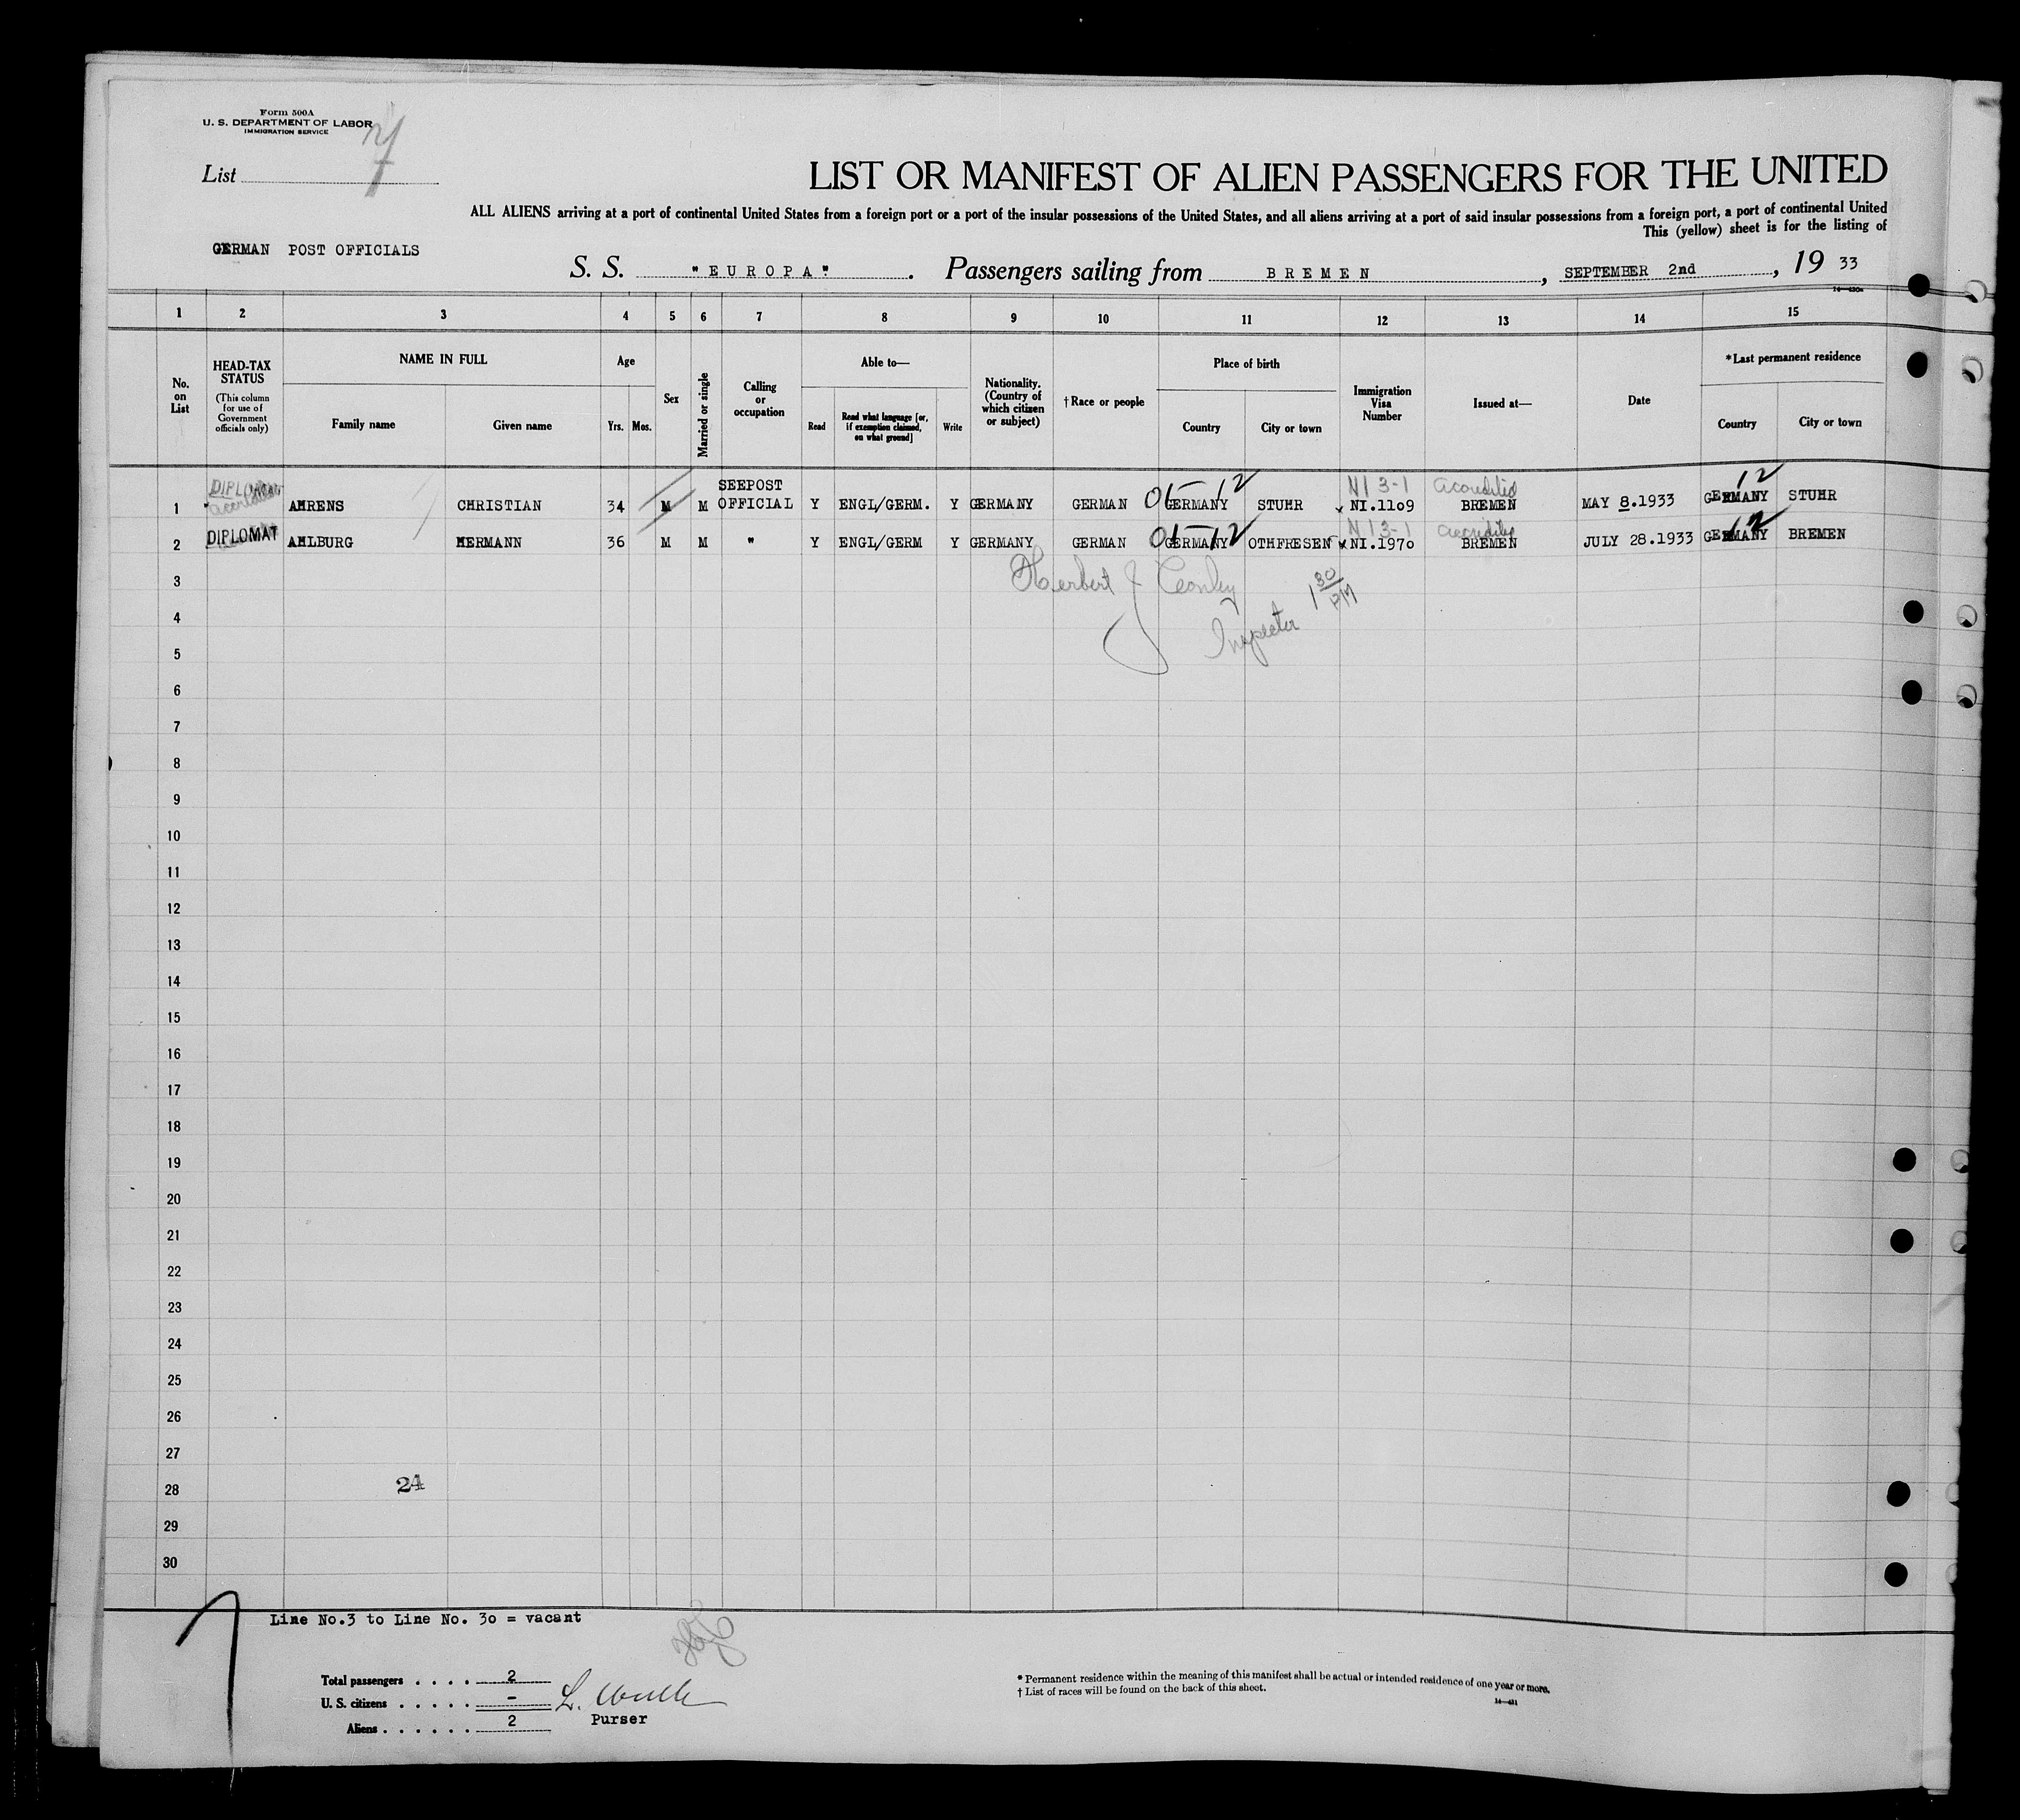 Form 500A
U. S. DEPARTMENT OF LABOR
IMMIGRATION SERVICE
List
LIST OR MANIFEST OF ALIEN PASSENGERS FOR THE UNITED
ALL ALIENS arriving at a port of continental United States from a foreign port or a port of the insular possessions of the United States, and all aliens arriving at a port of said insular possessions from a foreign port, a port of continental United
This (yellow) sheet is for the listing of
GERMAN POST OFFICIALS
S. S. "EUROPA". Passengers sailing from BREMEN, SEPTEMBER 2nd, 19 33
1 2 3 4 5 6 7 8 9 10 11 12 13 14 15
No. on List
HEAD-TAX STATUS (This column for use of Government officials only)
NAME IN FULL
Family name Given name
Age
Yrs. Mos.
Sex
Married or single
Calling or occupation
Able to—
Read Read what language [or, if exemption claimed, on what ground] Write
Nationality. (Country of which citizen or subject)
†Race or people
Place of birth
Country City or town
Immigration Visa Number
Issued at—
Date
*Last permanent residence
Country City or town
DIPLOMAT N13-1 Accredited 12
1 AHRENS CHRISTIAN 34 M M SEEPOST OFFICIAL Y ENGL/GERM. Y GERMANY GERMAN GERMANY STUHR NI.1109 BREMEN MAY 8.1933 GERMANY STUHR
N13-1 accredited 12
2 DIPLOMAT AHLBURG HERMANN 36 M M " Y ENGL/GERM Y GERMANY GERMAN GERMANY OTHFRESEN NI.1970 BREMEN JULY 28.1933 GERMANY BREMEN
3
Herbert J
4
Inspector 1 30 PM
5
6
7
8
9
10
11
12
13
14
15
16
17
18
19
20
21
22
23
24
25
26
27
28 24
29
30
Line No.3 to Line No. 30 = vacant
Total passengers . . . . 2
U. S. citizens . . . . . –
Aliens . . . . . . 2
Purser
* Permanent residence within the meaning of this manifest shall be actual or intended residence of one year or more.
† List of races will be found on the back of this sheet.